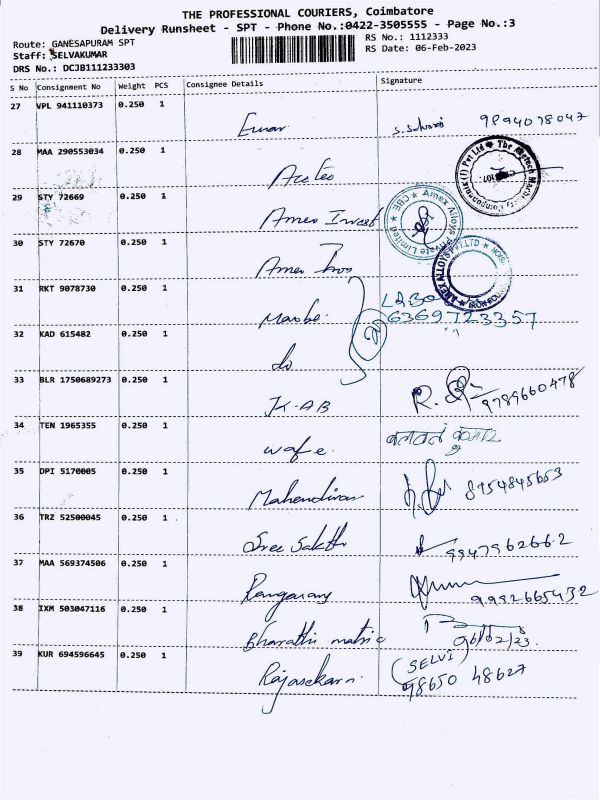 THE PROFESSIONAL COURIERS, Coimbatore
Delivery Runsheet - SPT - Phone No.:0422-3505555 - Page No.:3
Route: GANESAPURAM SPT
RS No.: 1112333
Staff: SELVAKUMAR
RS Date: 06-Feb-2023
DRS No.: DCJB111233303
S No Consignment No Weight PCS Consignee Details Signature
27 VPL 941110373 0.250 1
9894078047
28 MAA 290553034 0.250 1
29 STY 72669 0.250 1
Amex Invest
Amex Alloys Private Limited ★ CBE ★
30 STY 72670 0.250 1
Amex
AMEX ALLOYS PVT.LTD
31 RKT 9078730 0.250 1
6369723357
32 KAD 615482 0.250 1
do
33 BLR 1750689273 0.250 1
J.K-AB
9789660478
34 TEN 1965355 0.250 1
wafe.
35 DPI 5170005 0.250 1
Mahendiran
8754845653
36 TRZ 52500045 0.250 1
Sree Sakthi
9947962662
37 MAA 569374506 0.250 1
Rangarany
9992665432
38 IXM 503047116 0.250 1
Bharathi matric
06/02/23.
39 KUR 694596645 0.250 1
Rajasekarn.
(SELVI)
98650 48627